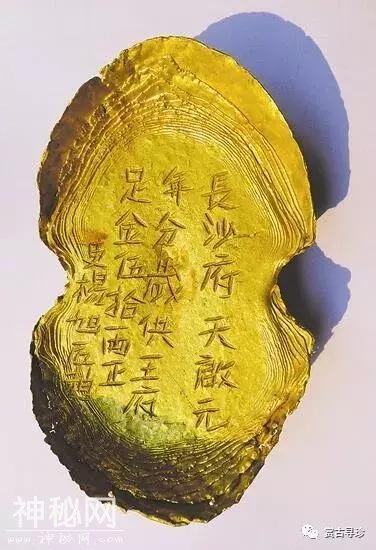 長沙府天啟元
年分歲供王府
足金伍拾両正
吏楊旭匠
神秘网
www.shenmiwang.com
赏古寻珍